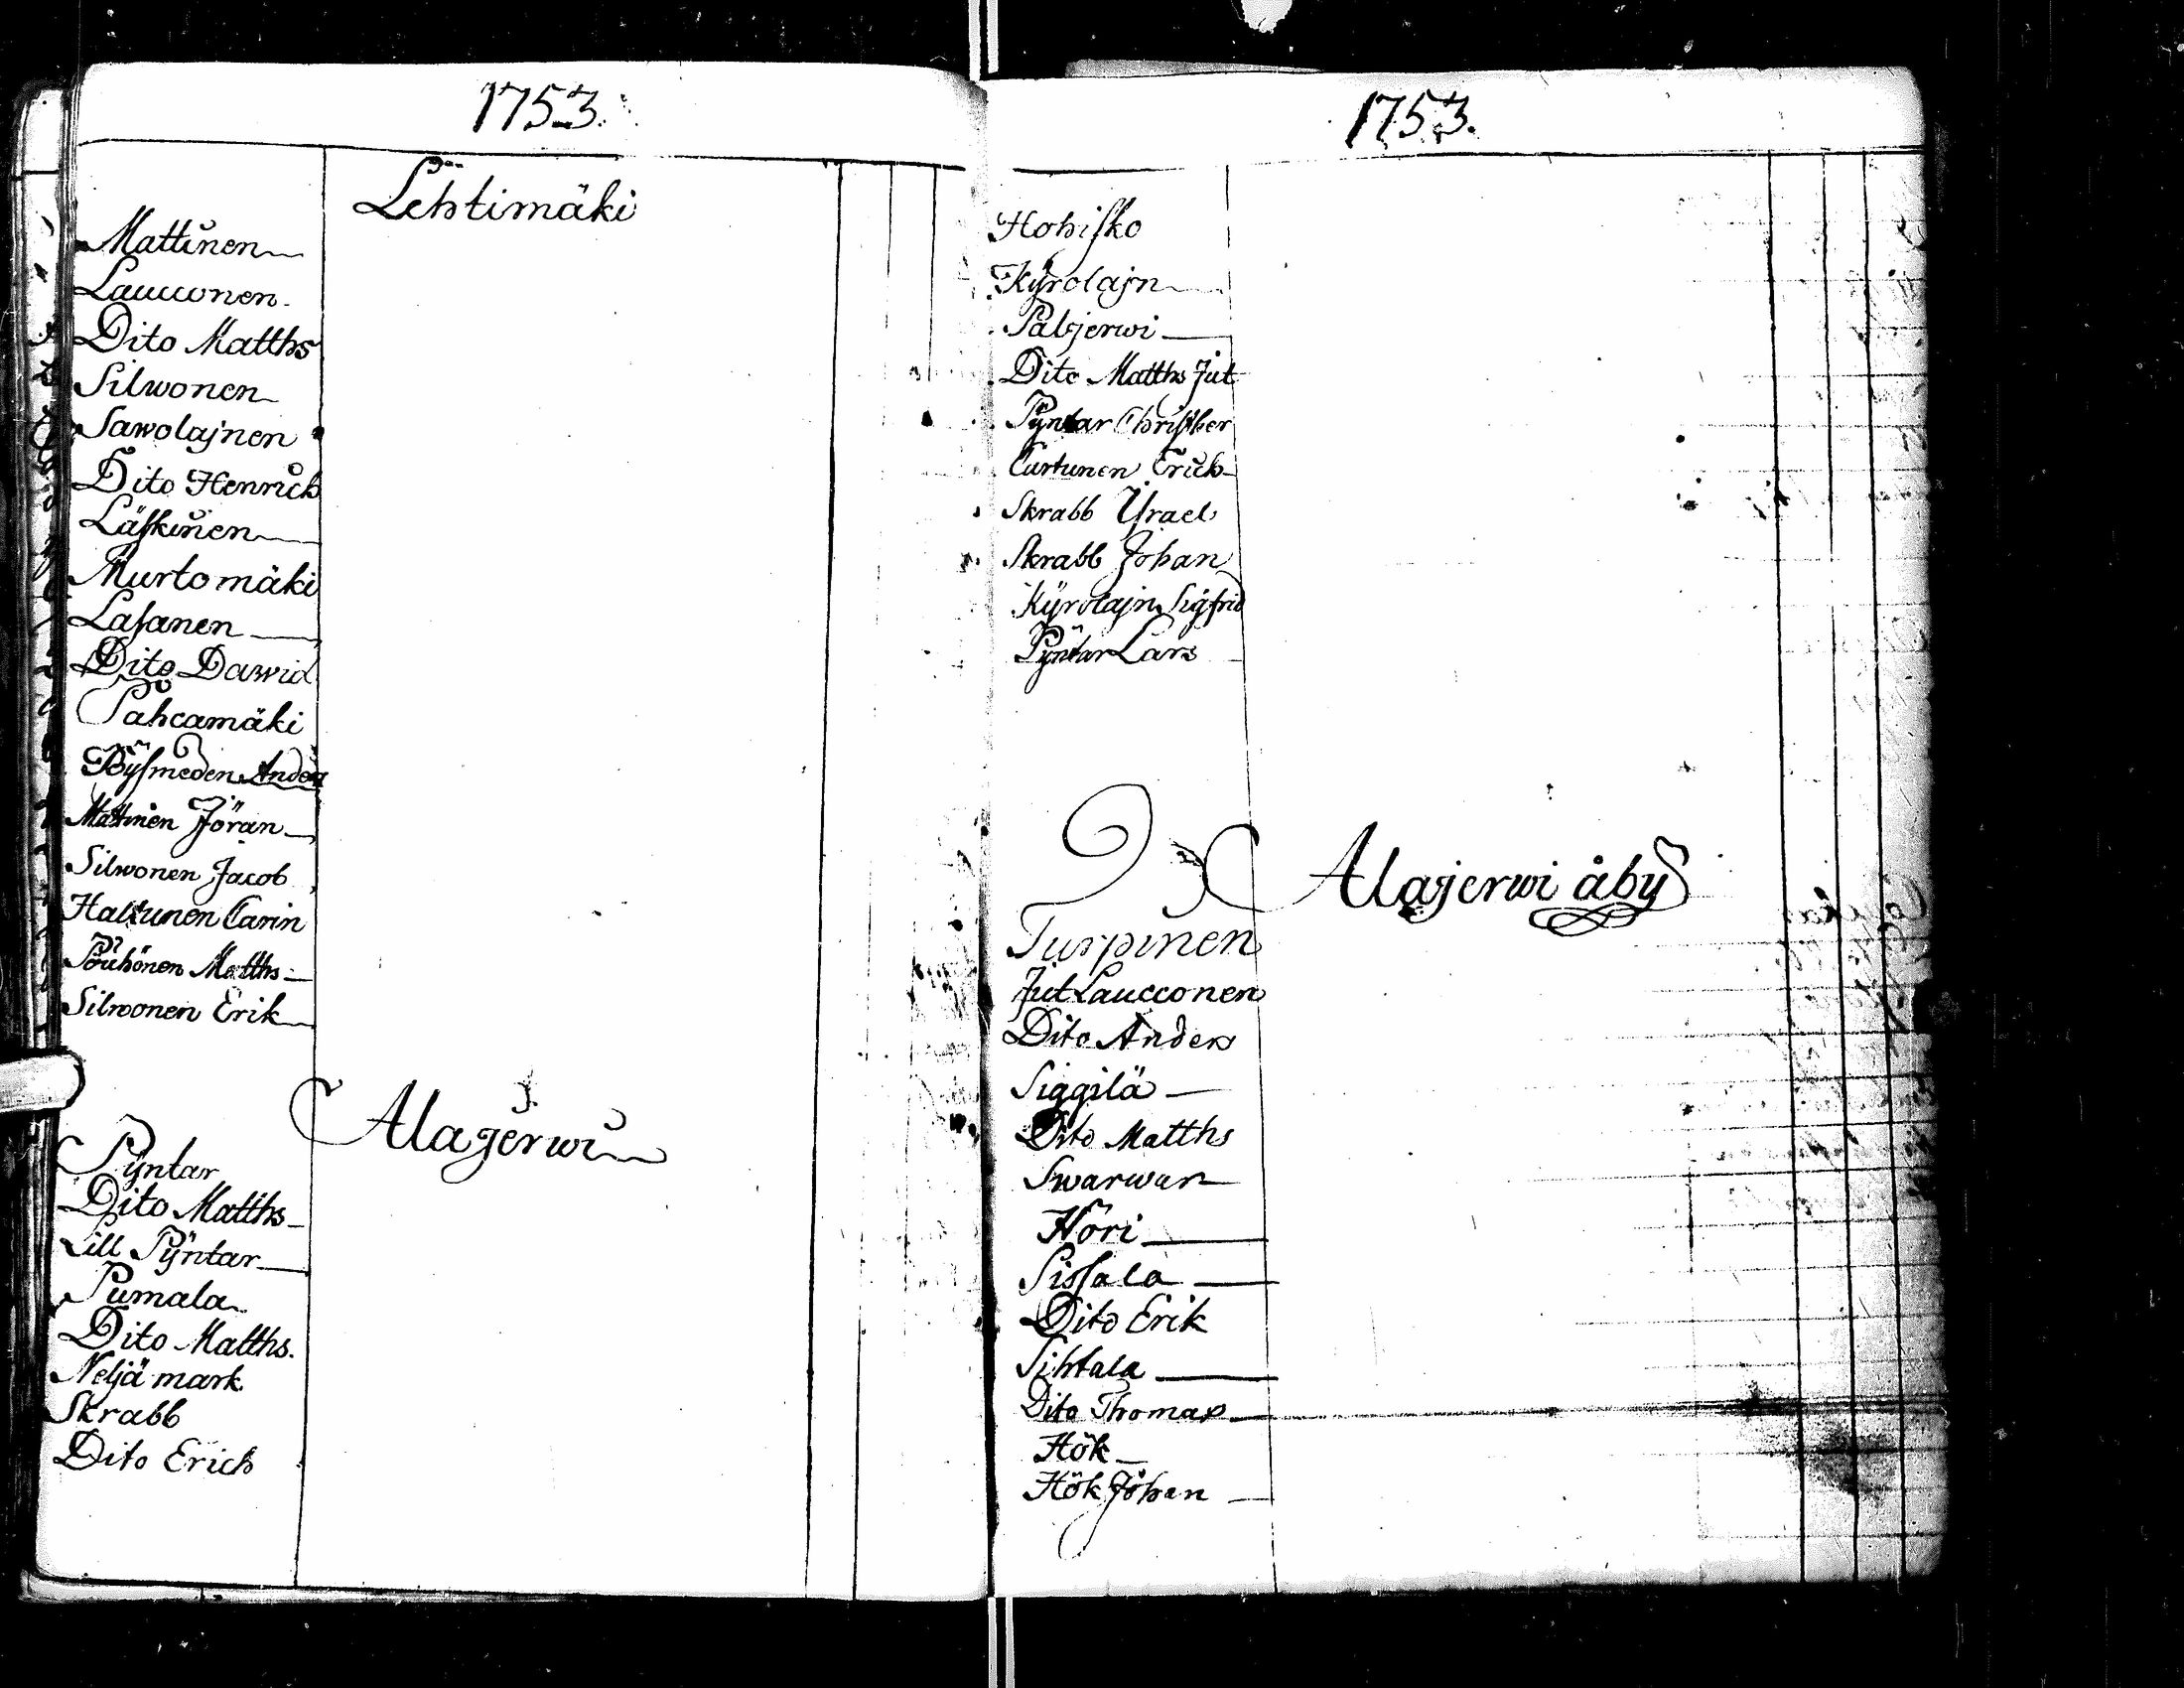 1753.
Lehtimäki
Mattinen
Laucconen
Dito Matths
Silwonen
Sawolajnen
Dito Henrich
Läskinen
Murtomäki
Lasanen
Dito Dawid
Pahcamäki
Mattinen Jöran
Silwonen Jacob
Haltunen Carin
Pöuhönen Matths
Silwonen Erik
Alajerwi
Pÿntar
Dito Matths
Lill Pÿntar
Pumala
Dito Matths.
Neljä mark
Skrabb
Dito Erich
1753.
Hohisko
Kÿrolajn
Paljerwi
Dito Matths Jut
Pÿntar Christher
Curtunen Erich
Skrabb Ysrael
Skrabb Johan
Kÿrolajn Sigfrid
Pÿntar Lars
Alajerwi åby
Turpinen
Jut Laucconen
Dito Anders
Siggilä
Dito Matths
Swarwar
Höri
Sissala
Dito Erik
Sihtala
Dito Thomas
Hök
Hök Johan